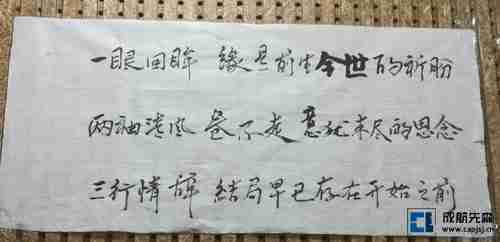 一眼回眸 缘是前生今世的祈盼
两袖清风 卷不走意犹未尽的思念
三行情辞 結局早已存在开始之前
成航先森
www.capjsj.cn